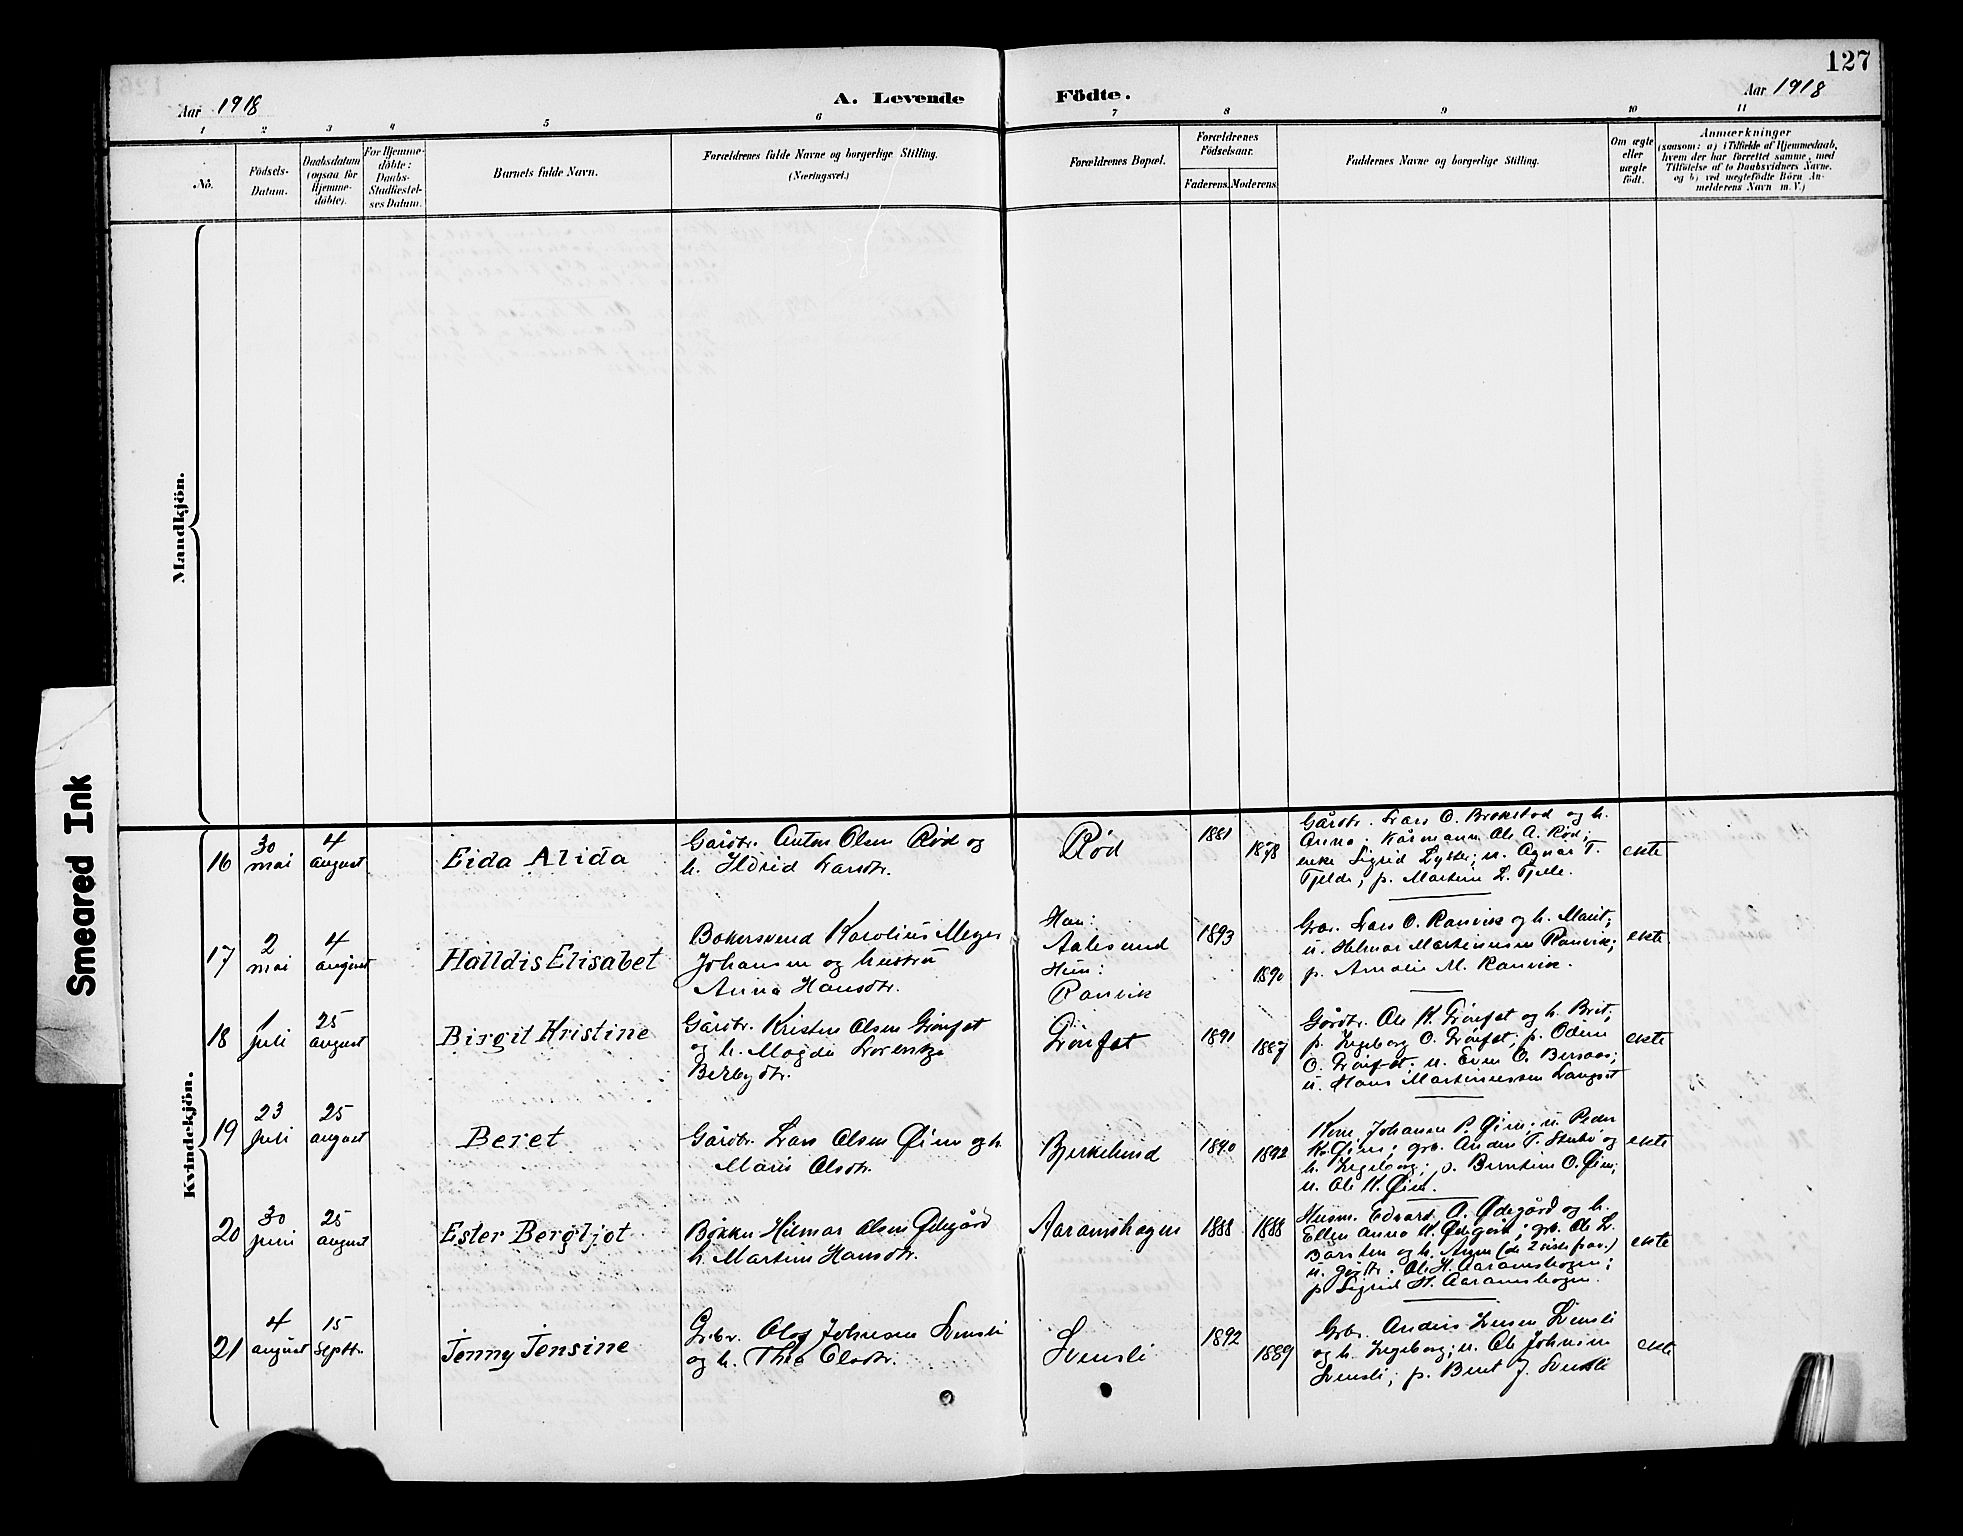 127
Aar 1918
A. Levende Födte.
Aar 1918
1 2 3 4 5 6 7 8 9 10 11
No.
Födsels-
Datum.
Daabsdatum
(ogsaa for
Hjemme-
döbte).
For Hjemme-
döbte:
Daabs-
Stadfæstel-
ses Datum.
Barnets fulde Navn.
Forældrenes fulde Navne og borgerlige Stilling.
(Næringsvei.)
Forældrenes Bopæl.
Forældrenes
Födselsaar.
Faderens. Moderens.
Faddernes Navne og borgerlige Stilling.
Om ægte
eller
uægte
født.
Anmærkninger
(saasom: a) i Tilfælde af Hjemmedaab,
hvem der har forrettet samme, med
Tilföielse af to Daabsvidners Navne,
og b) ved uægtefödte Börn An-
melderens Navn m. V.)
Mandkjön.
Smeared Ink
Kvindekjön.
16
30
mai
4
august
Eida Alida
Gårdbr. Anton Olsen Rød og
h. Ildrid Larsdtr.
Rød
1881
1878
Gårdbr. Lars O. Brokstad og h.
Anna; Kårmann Ole A. Rød;
enke Sigrid u. Agnar T.
Tjelde; p. Martine L. Tjelle.
ekte
17
2
mai
4
august
Halldis Elisabet
Bakersvend Karolius Meyer
Johansen og hustru
Anna Hansdtr.
Han:
Aalesund
Hun:
Ranvik
1893
1890
Lars O. Ranvik og h. Marit;
u. Helmar Martinussen Ranvik;
p. Amalie M. Ranvik.
ekte
18
1
juli
25
august
Birgit Kristine
Gårdbr. Kristen Olsen Grønset
og h. Magda
Grønset
1891
1887
Gårdbr. Ole K. Grønset og h. Brit;
p. Ingeborg O. Grønset; p.
O. Grønset; u. Even O.
u. Hans Martinussen Langset
ekte
19
23
juli
25
august
Beret
Gårdbr. Lars Olsen Øien og h.
Marit Olsdtr.
Bjerkelund
1890
1892
Johanna P. Øien; u. Peder
K. Øien; grb. Anders T. og
h. Ingeborg; p. Berntine O. Øien;
u. Ole K. Øien.
ekte
20
30
juni
25
august
Ester Bergljot
Bøkker Hilmar Olsen Ødegård
h. Martine Hansdtr.
Aaramshagen
1888
1888
Husm. Edvart A. Ødegård og h.
Ellen Anna K. Ødegård; grb. Ole L.
og h. Anne (de 2 siste frav.)
u. Ole H. Aaramshagen;
p. Sigrid H. Aaramshagen.
ekte
21
4
august
15
septbr.
Jenny Jensine
Grbr. Olaf Johnsen Svensli
og h. Thea Olsdtr.
Svensli
1892
1889
Grbr. Anders Svensli
og h. Ingeborg; u. Ole Johnsen
Svensli; p. Berit J. Svensli
ekte